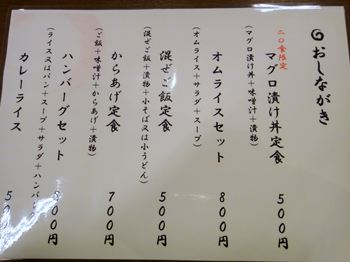 おしながき
二〇食限定
マグロ漬け丼定食 500円
(マグロ漬け丼+味噌汁+漬物)
オムライスセット 800円
(オムライス+サラダ+スープ)
混ぜご飯定食 500円
(混ぜご飯+漬物+小そば又は小うどん)
からあげ定食 700円
(ご飯+味噌汁+からあげ+漬物)
ハンバーグセット 800円
(ライス又はパン+スープ+サラダ+ハンバ
カレーライス 50